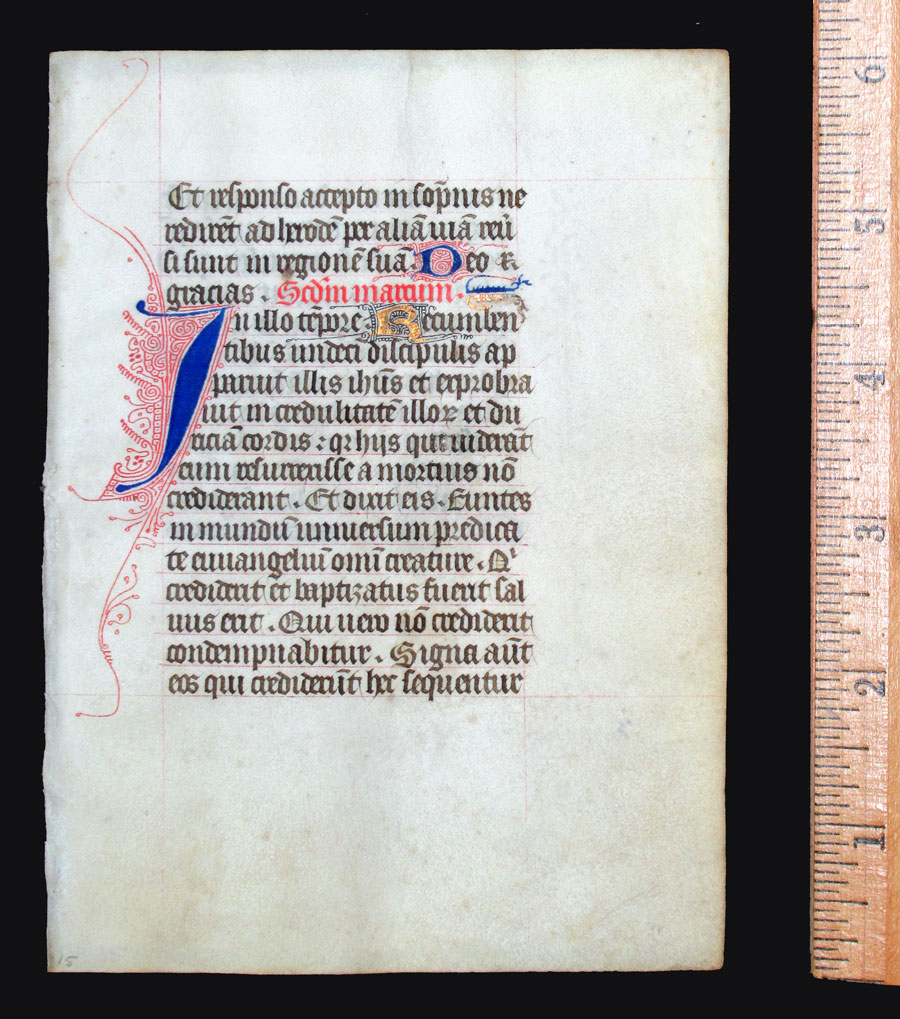 Et responso accepto in sōpnis ne
redirēt ad herodē per aliā uiā reū
si sunt in regionē suā. Deo
gracias. Scdm marcum.
In illo tēpore. Recumben
tibus undeci discipulis ap
paruit illis ihūs et exprobra
uit in credulitatē illoꝝ et du
riciā cordis: qꝛ hijs qui uiderāt
eum resurrexisse a mortuis nō
crediderant. Et dixit eis. Euntes
in mundū uniuersum predica
te euuangeliū omi creature. Qi
crediderit et baptizatus fuerit sal
uus erit. Qui uero nō crediderit
condempnabitur. Signa aūt
eos qui crediderūt hec sequentur
15
6
5
4
3
2
1